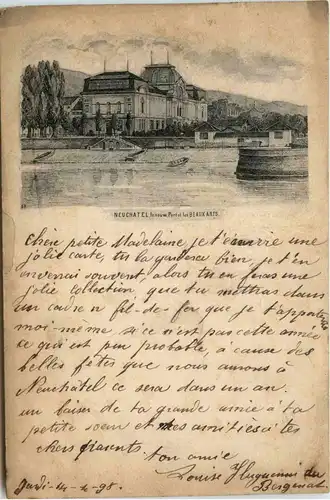 NEUCHATEL Port et les BEAUX ARTS.
Chère petite Madelaine je t'envoie une
jolie carte, tu la garderas bien, je t'en
enverrai souvent, alors tu en feras une
jolie collection, que tu mettras dans
un cadre n fil-de-fer que je t'apporterai
moi-même si ce n'est pas cette année
ce qui est peu probable, à cause des
belles fêtes que nous aurons à
Neuchâtel ce sera dans un an.
un baiser de ta grande amie à ta
petite soeur et mes amitiés à tes
chers parents.
ton amie
Louise Huguenin du
Jeudi 98.